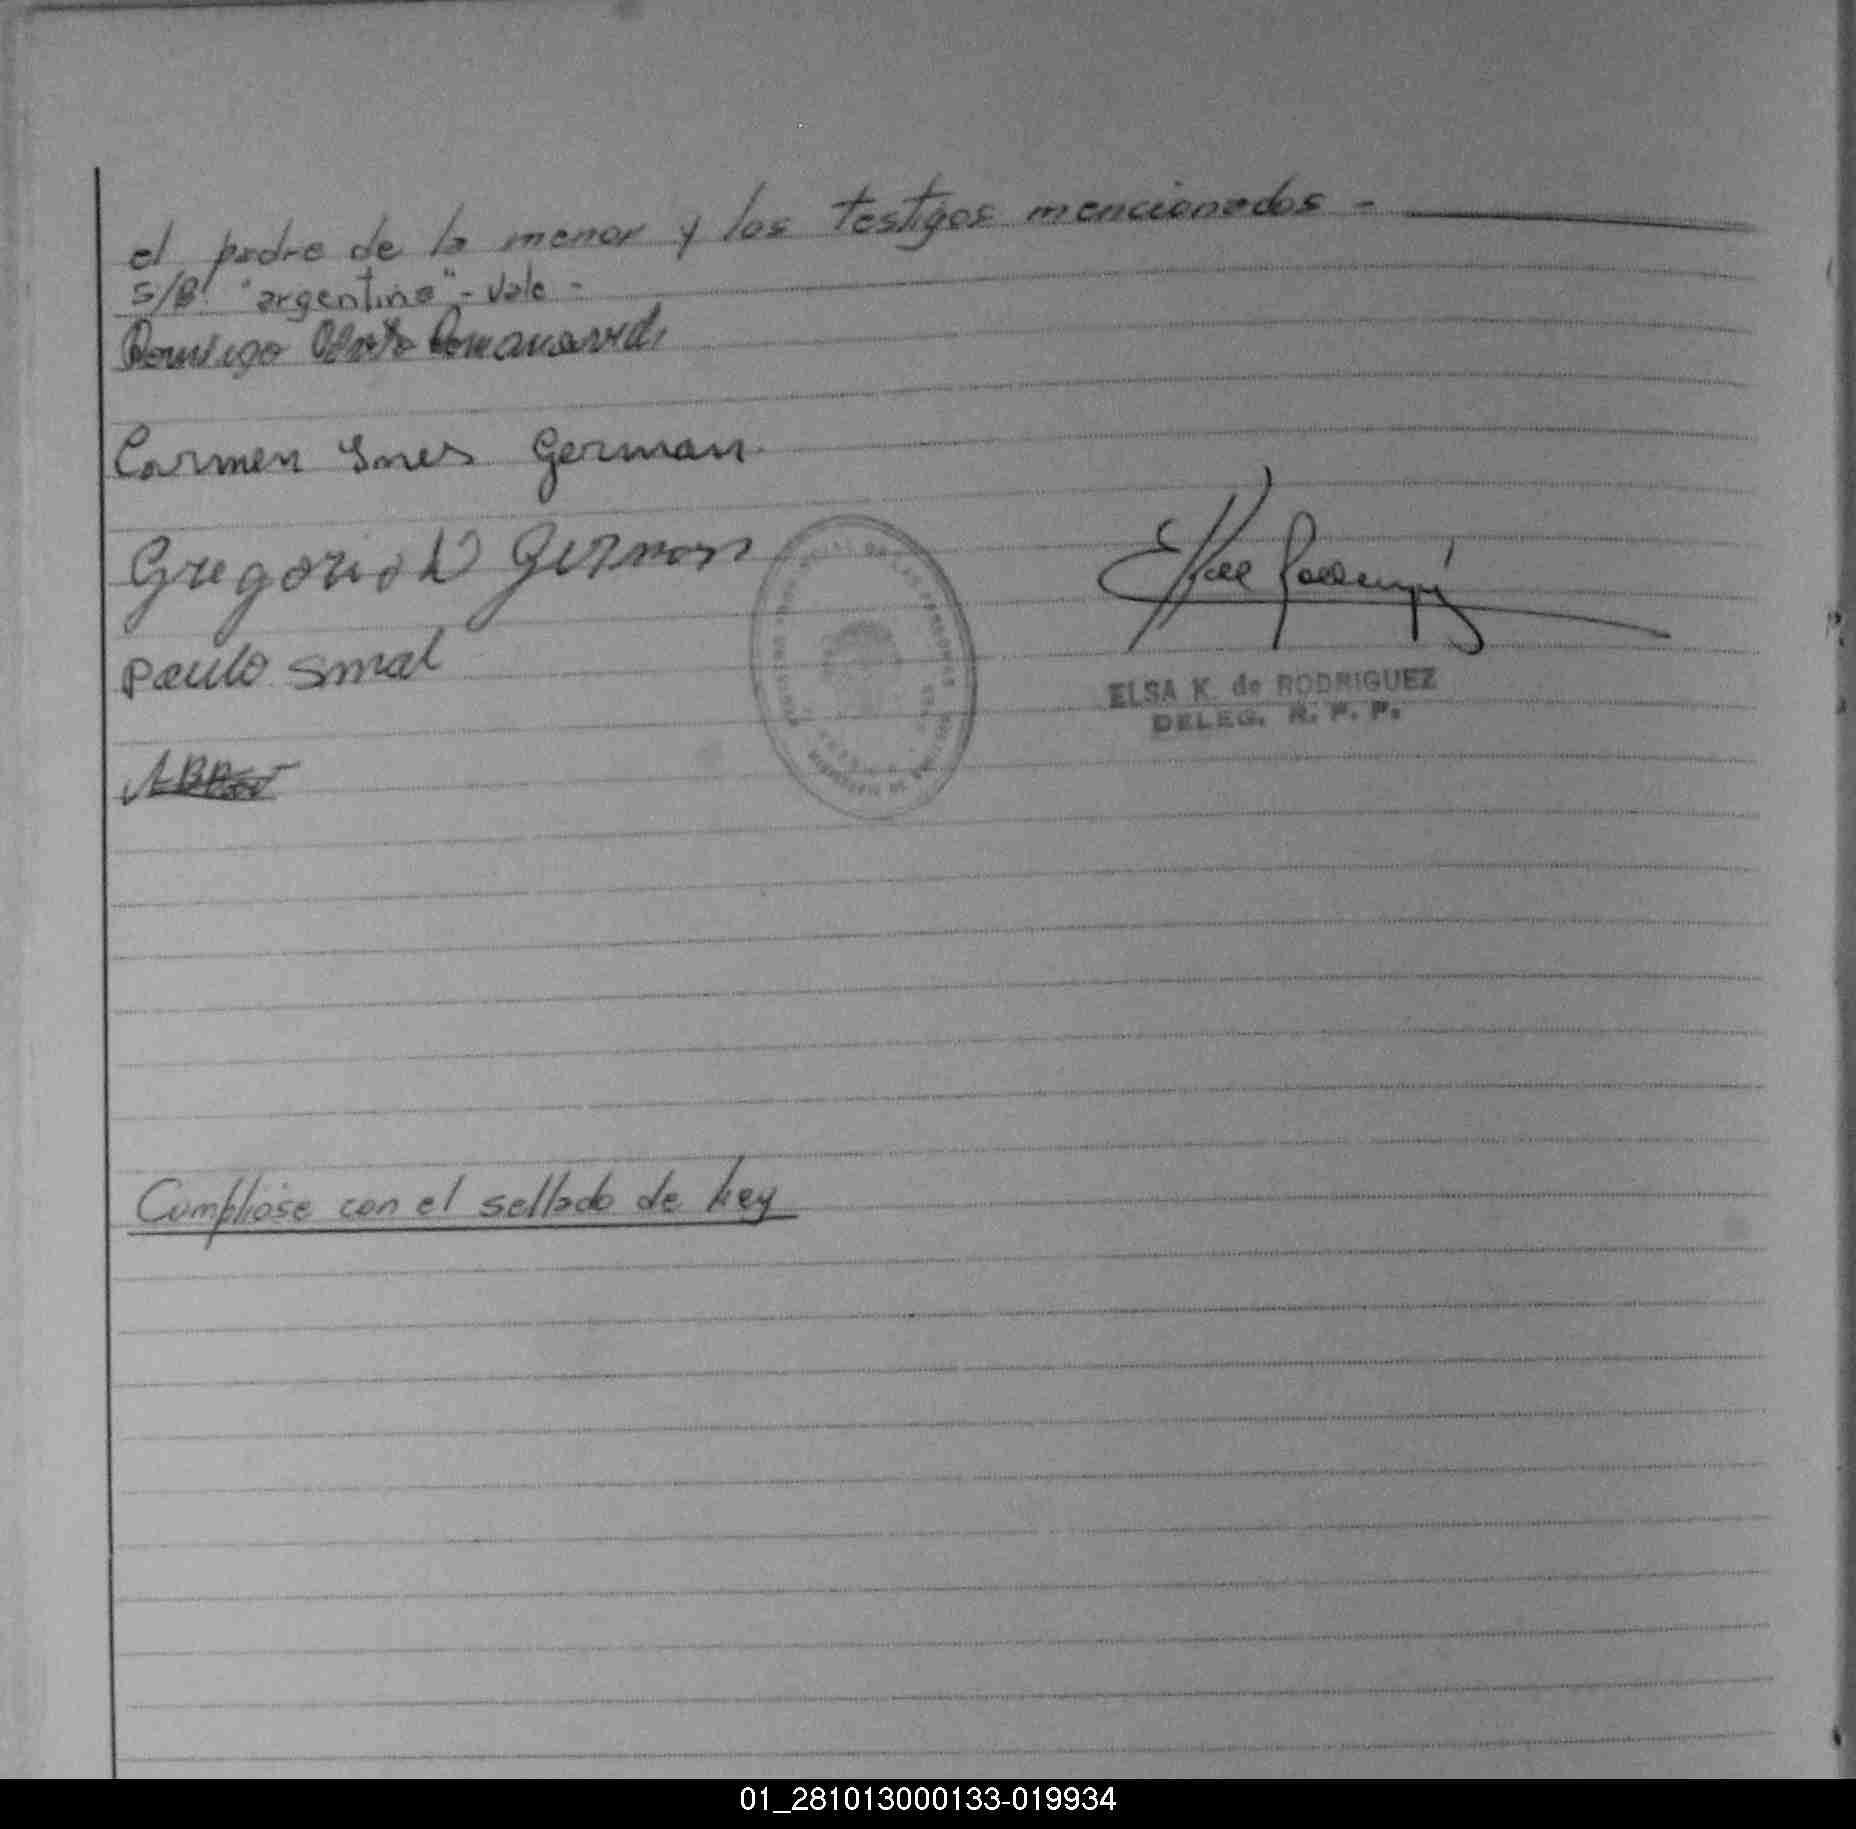 el padre de la menor y los testigos mencionados -
S/B: "argentino" - Vale -
Domingo
Carmen Ines German
Gregorio German
Paulo Smal
ELSA K. de RODRIGUEZ
DELEG. R. P. P.
Cumplióse con el sellado de Ley
01_281013000133-019934